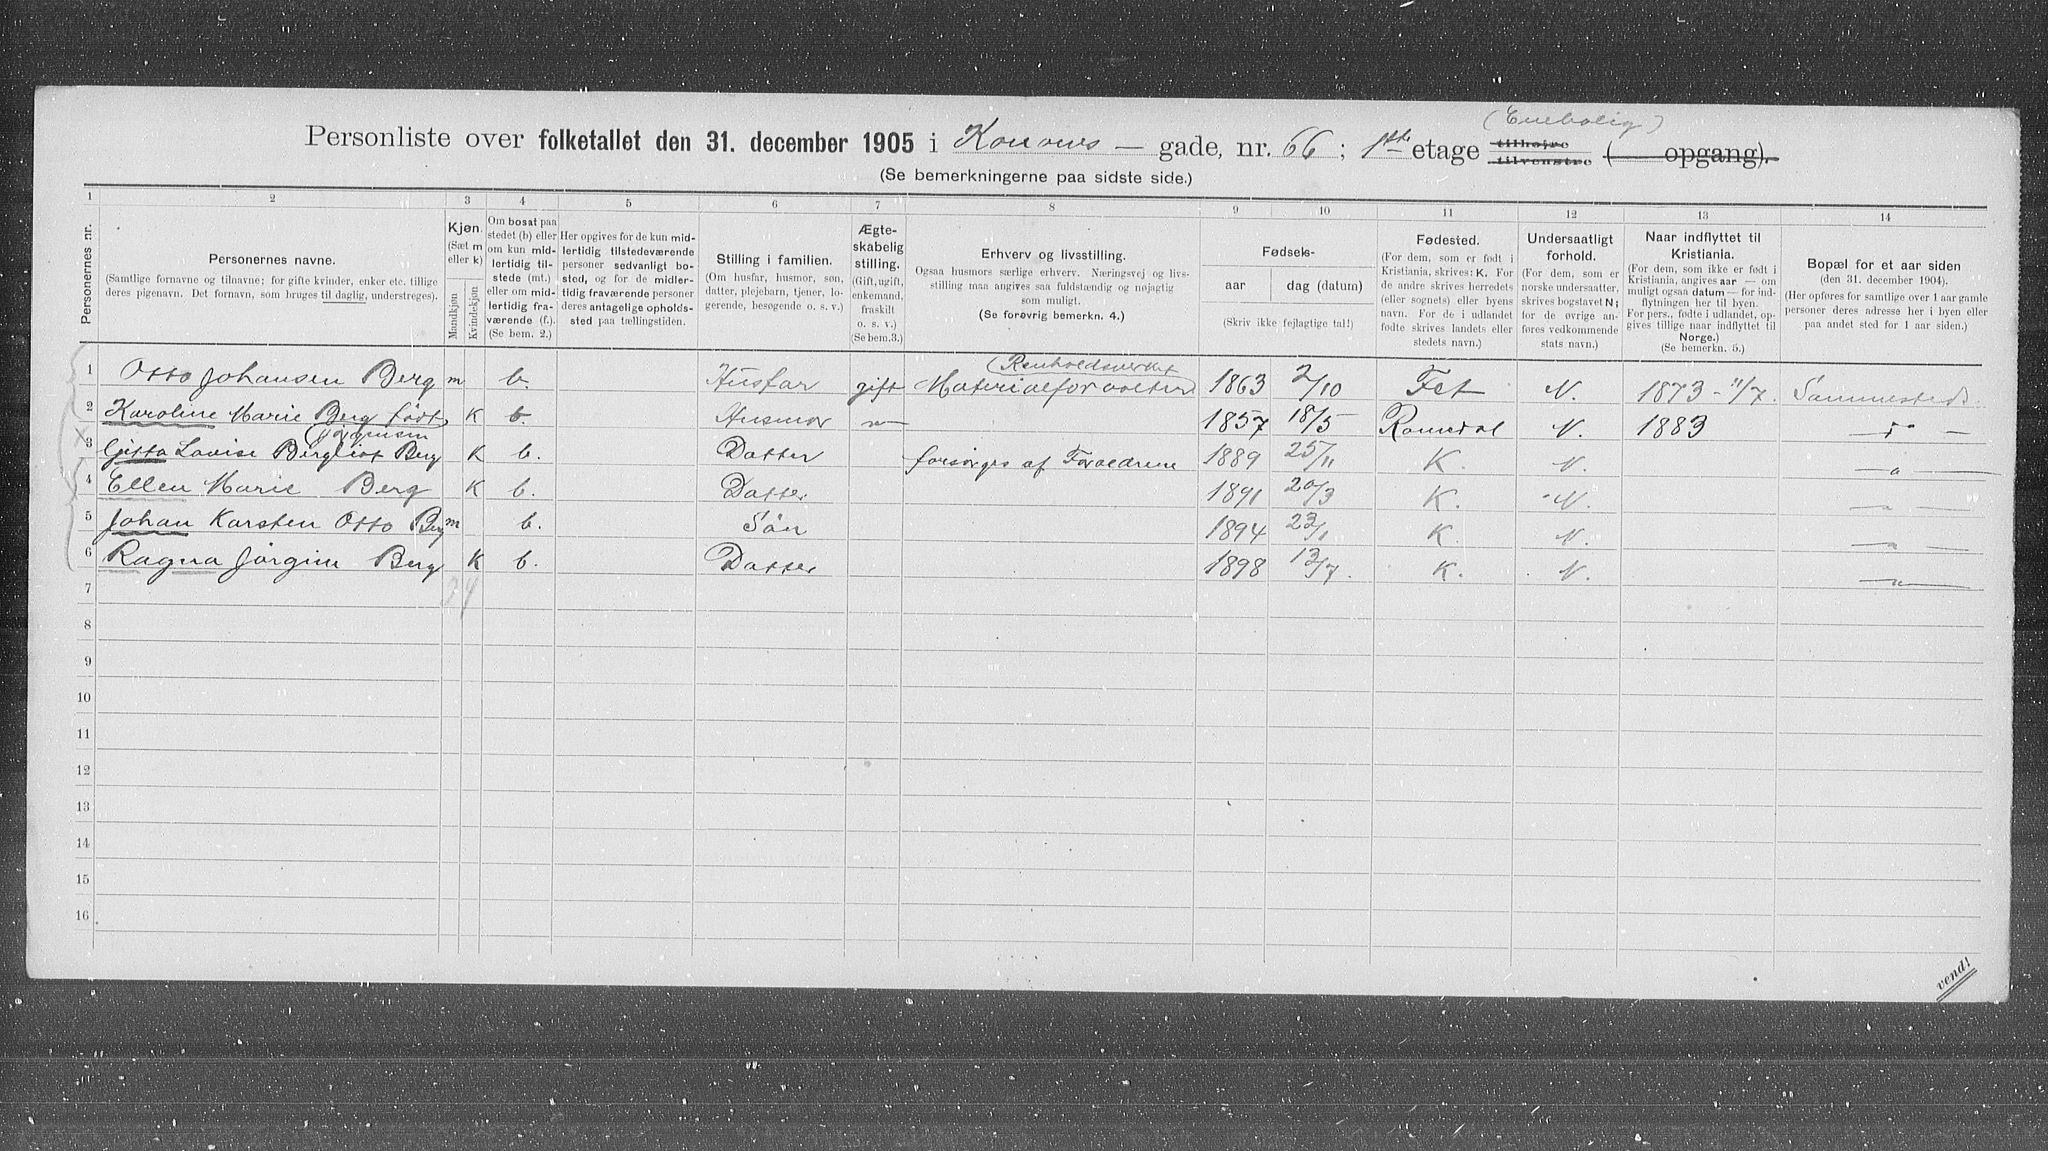 (Enebolig)
Personliste over folketallet den 31. december 1905 i Konows — gade, nr. 66; 1ste etage tilhøjre tilvenstre (— opgang).
(Se bemerkningerne paa sidste side.)
1 2 3 4 5 6 7 8 9 10 11 12 13 14
Personernes nr.
Personernes navne.
(Samtlige fornavne og tilnavne; for gifte kvinder, enker etc. tillige
deres pigenavn. Det fornavn, som bruges til daglig, understreges).
Kjøn.
(Sæt m
eller k)
Mandkjøn
Kvindekjøn
Om bosat paa
stedet (b) eller
om kun mid-
lertidig til-
stede (mt.)
eller om mid-
lertidig fra-
værende (f.).
(Se bem. 2.)
Her opgives for de kun mid-
lertidig tilstedeværende
personer sedvanligt bo-
sted, og for de midler-
tidig fraværende personer
deres antagelige opholds-
sted paa tællingstiden.
Stilling i familien.
(Om husfar, husmor, søn,
datter, plejebarn, tjener, lo-
gerende, besøgende o. s. v.)
Ægte-
skabelig
stilling.
(Gift, ugift,
enkemand,
fraskilt
o. s. v.)
(Se bem.3.)
Erhverv og livsstilling.
Ogsaa husmors særlige erhverv. Næringsvej og livs-
stilling maa angives saa fuldstændig og nøjagtig
som muligt.
(Se forøvrig bemerkn. 4.)
Fødsels-
aar
dag (datum)
(Skriv ikke fejlagtige tal!)
Fødested.
(For dem, som er født i
Kristiania, skrives: K. For
de andre skrives herredets
(eller sognets) eller byens
navn. For de i udlandet
fødte skrives landets eller
stedets navn.)
Undersaatligt
forhold.
(For dem, som er
norske undersaatter,
skrives bogstavet N;
for de øvrige an-
føres vedkommende
stats navn.)
Naar indflyttet til
Kristiania.
(For dem, som ikke er født i
Kristiania, angives aar — om
muligt ogsaa datum — for ind-
flytningen her til byen.
For pers., fødte i udlandet, op-
gives tillige naar indflyttet til
Norge.)
(Se bemerkn. 5.)
Bopæl for et aar siden
(den 31. december 1904).
(Her opføres for samtlige over 1 aar gamle
personer deres adresse her i byen eller
paa andet sted for 1 aar siden.)
1 Otto Johansen Berg m b. Husfar gift (Renholdsverket Materialforvalter 1863 2/10 Fet N. 1873 - 11/7. Sammesteds.
2 Karoline Marie Berg født K b. Husmor — " — 1857 18/5 Romedal N. 1883 — " —
Jørgensen
3 Gitta Lovise Bergliot Berg K b. Datter forsørges af Forældrene 1889 25/11 K. N. — " —
4 Ellen Marie Berg K b. Datter 1891 20/3 K. N. — " —
5 Johan Karsten Otto Berg m b. Søn 1894 23/1 K. N. — " —
6 Ragna Jørgine Berg K b. Datter 1898 13/7. K. N. — " —
7
8
9
10
11
12
13
14
15
16
vend!